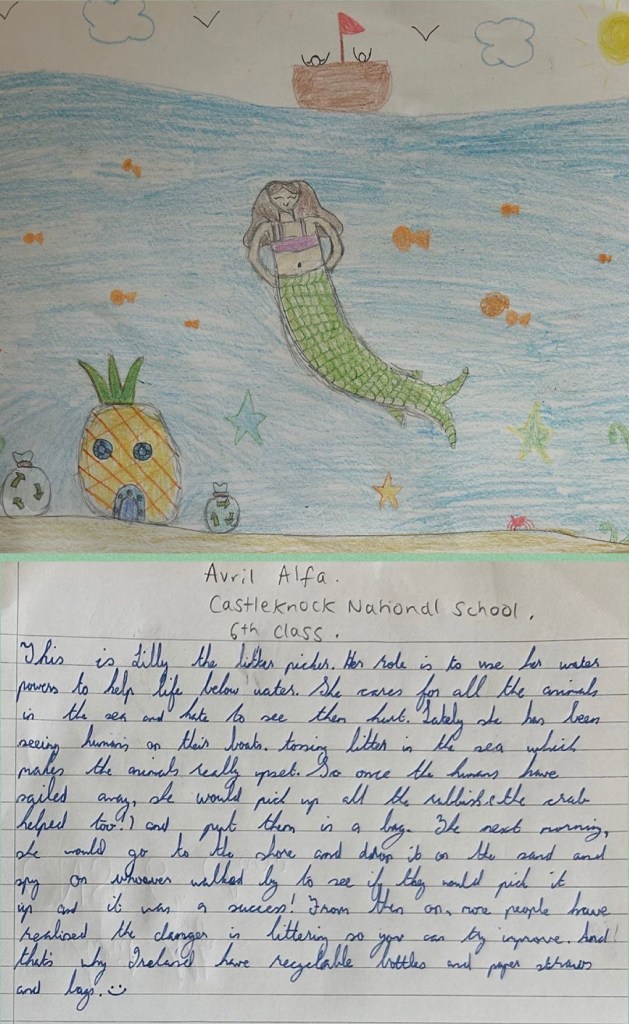 Avril Alfa.
Castleknock National School.
6th class.
This is Lilly the litter picker. Her role is to use her water
powers to help life below water. She cares for all the animals
in the sea and hate to see them hurt. Lately she has been
seeing humans on their boats. tossing litter in the sea which
makes the animals really upset. So once the humans have
sailed away, she would pick up all the rubbish (the crab
helped too!) and put them in a bag. The next morning,
she would go to the shore and drop it on the sand and
spy on whoever walked by to see if they would pick it
up and it was a success! From then on, more people have
realised the danger in littering so you can try improve. And
thats why Ireland have recyclable bottles and paper straws
and bags.